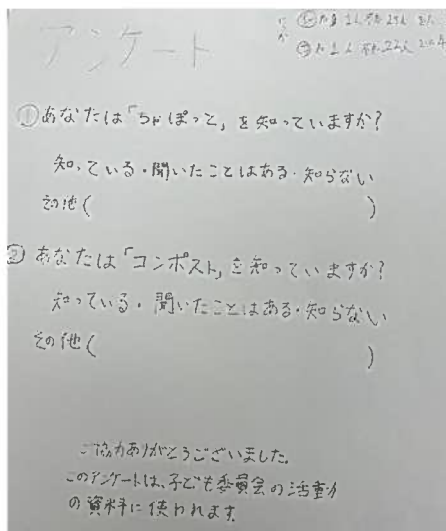 アンケート
①あなたは「ちゃぽっと」を知っていますか?
知っている・聞いたことはある・知らない
その他( )
②あなたは「コンポスト」を知っていますか?
知っている・聞いたことはある・知らない
その他( )
ご協力ありがとうございました。
このアンケートは、子ども委員会の活動
の資料に使われます。